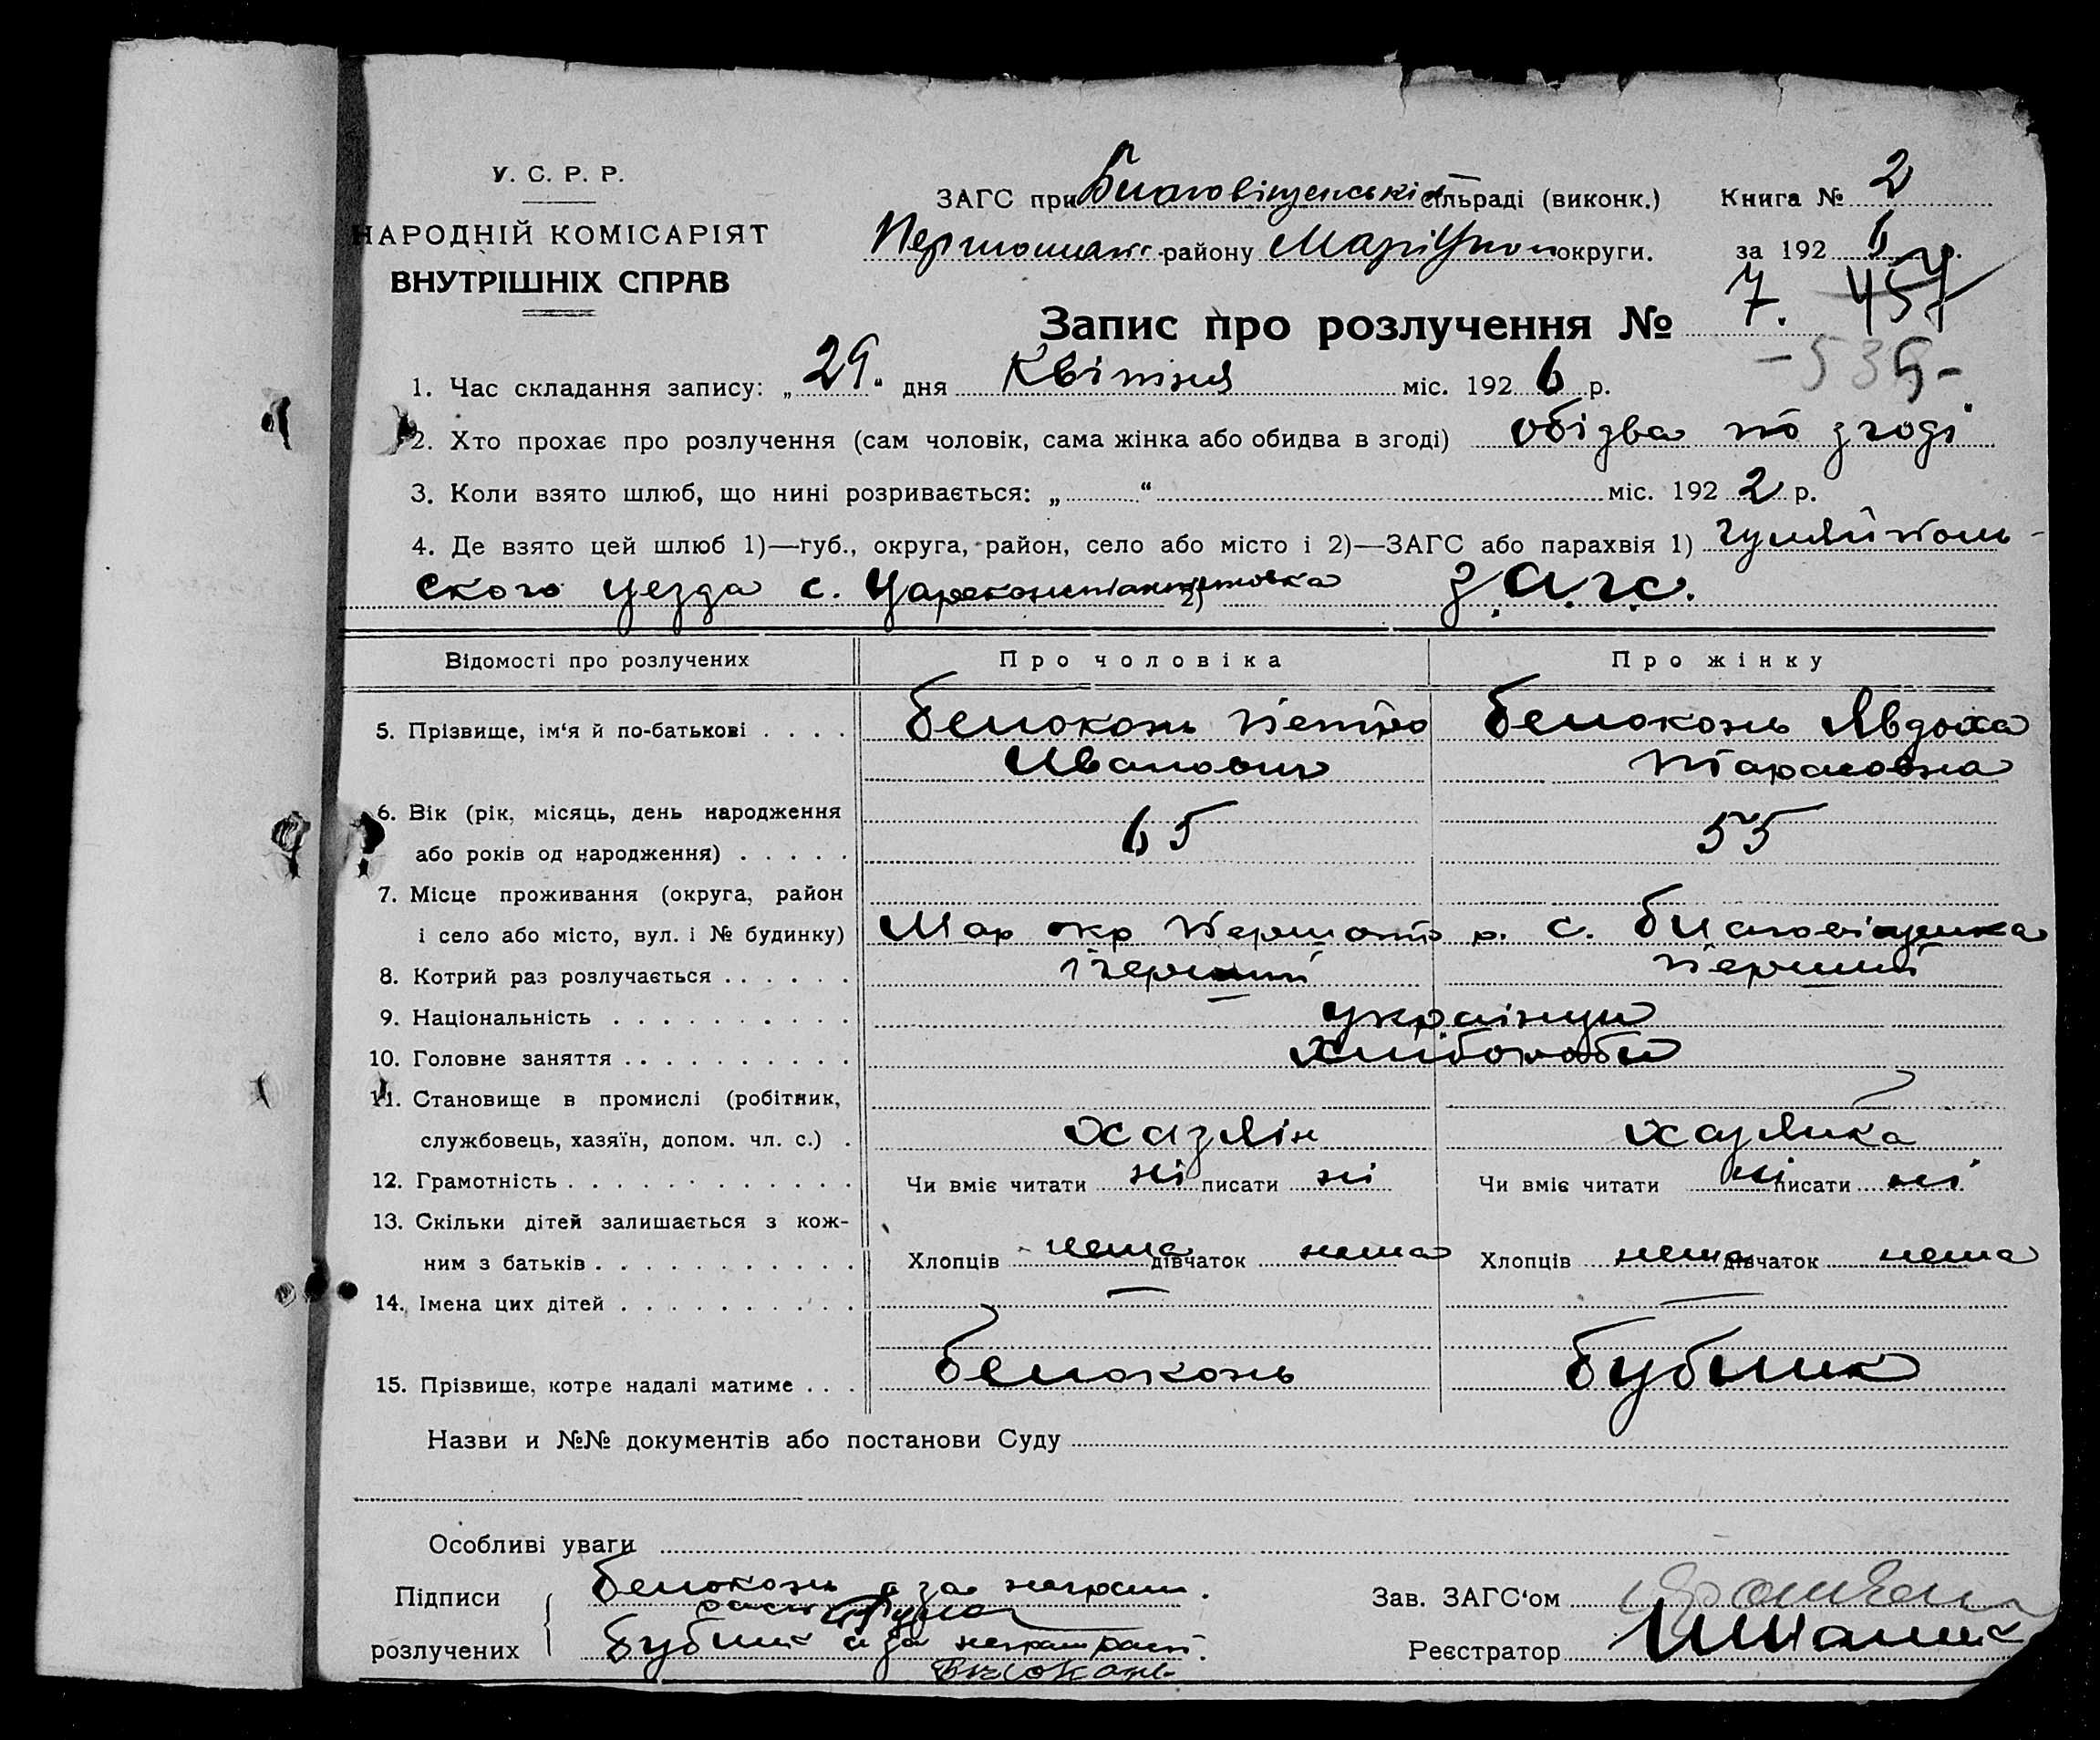 У. С. Р. Р.
НАРОДНІЙ КОМІСАРІЯТ
ВНУТРІШНІХ СПРАВ
ЗАГС при Благовіщенські сільраді (виконк.) Книга № 2
Першотравн. району Маріупол округи. за 1926 р.
Запис про розлучення № 7. 457
-535-
1. Час складання запису: „29." дня Квітня міс. 1926 р.
2. Хто прохає про розлучення (сам чоловік, сама жінка або обидва в згоді) обідва по згоді
3. Коли взято шлюб, що нині розривається: „ “ міс. 1922 р.
4. Де взято цей шлюб 1)—губ., округа, район, село або місто і 2)—ЗАГС або парахвія 1) Гуляйполь-
ского уезда с. Цареконстантиновка 2) З.А.Г.С.
Відомості про розлучених Про чоловіка Про жінку
5. Прізвище, ім‘я й по-батькові . . . . Белоконь Петро Белоконь Явдоха
Иванович Тарасовна
6. Вік (рік, місяць, день народження
або років од народження) . . . . . 65 55
7. Місце проживання (округа, район
і село або місто, вул. і № будинку) Мар окр Першотр р. с. Благовіщенка
8. Котрий раз розлучається . . . . . . перший перший
9. Національність . . . . . . . . . . українци
10. Головне заняття . . . . . . . . . . хлібороби
11. Становище в промислі (робітник,
службовець, хазяїн, допом. чл. с.) . хазяін хазяйка
12. Грамотність . . . . . . . . . . . . Чи вміє читати ні писати ні Чи вміє читати ні писати ні
13. Скільки дітей залишається з кож-
ним з батьків . . . . . . . . . . . Хлопців нема дівчаток нема Хлопців нема дівчаток нема
14. Імена цих дітей . . . . . . . . . . — —
15. Прізвище, котре надалі матиме . . . Белоконь Бублик
Назви и №№ документів або постанови Суду
Особливі уваги
Підписи Белоконь а за неграм.
розлучених Бублик а за неграм. Зав. ЗАГС‘ом
Білоконь Реєстратор